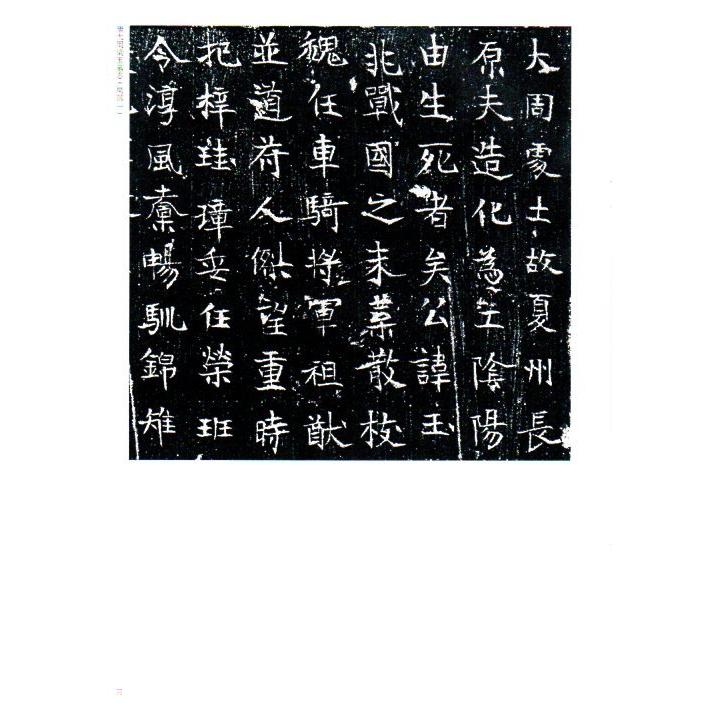 大周處士故夏州長
原夫造化為主陰陽
由生死者矣公諱玉
兆戰國之末葉散枝
魏任車騎將軍祖猷
並道苻人傑望重時
杞梓珪璋委任榮班
令淳風稟暢馴錦雉